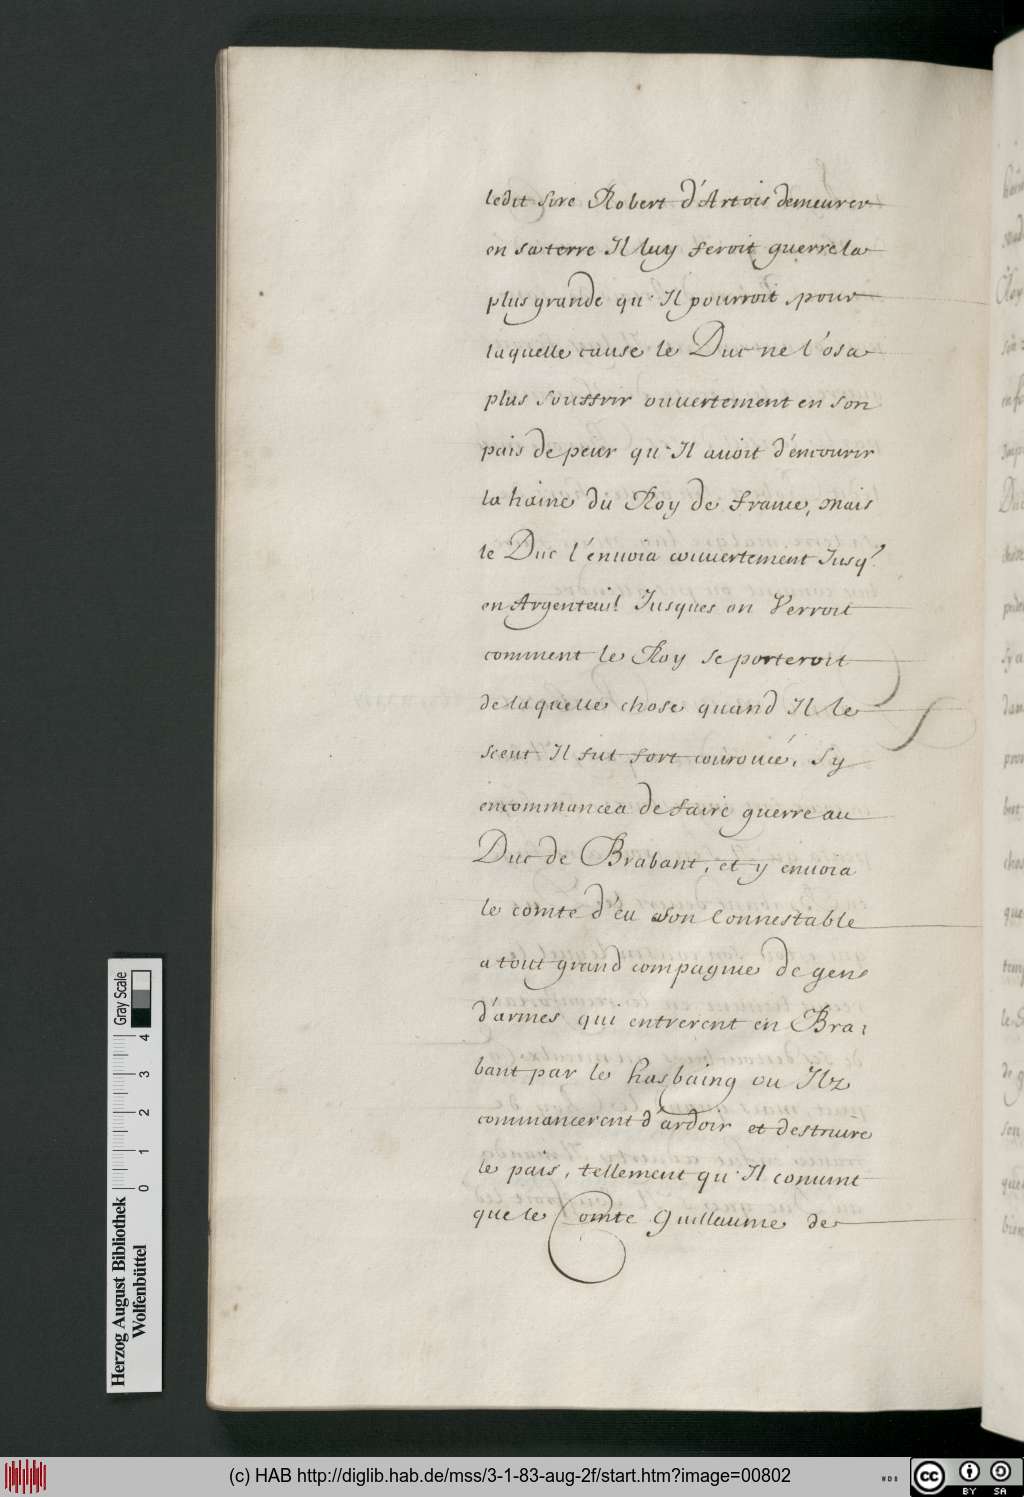 ledit sire Robert d'Artois demeurer
en sa terre Il luy feroit guerre la
plus grande qu'Il pourroit, pour
laquelle cause le Duc ne l'osa
plus souffrir ouuertement en son
païs de peur qu'Il auoit d'encourir
la haine du Roy de france, mais
le Duc l'enuoia couuertement Jusq'
en Argenteuil Jusques on Verroit
comment le Roy se porteroit
de laquelle chose quand Il le
sceut Il fut fort courouicé, sy
encommancea de faire guerre au
Duc de Brabant, et y enuoia
le comte d'eu son Connestable
a tout grand compagnie de gens
d'armes qui entrerent en Bra:
bant par le hasbaing ou Ilz
commancerent d'ardoir et destruire
le païs, tellement qu'Il conuint
que le Comte Guillaume de
Gray Scale
0 1 2 3 4
Herzog August Bibliothek
Wolfenbüttel
(c) HAB http://diglib.hab.de/mss/3-1-83-aug-2f/start.htm?image=00802
WDB
cc BY SA